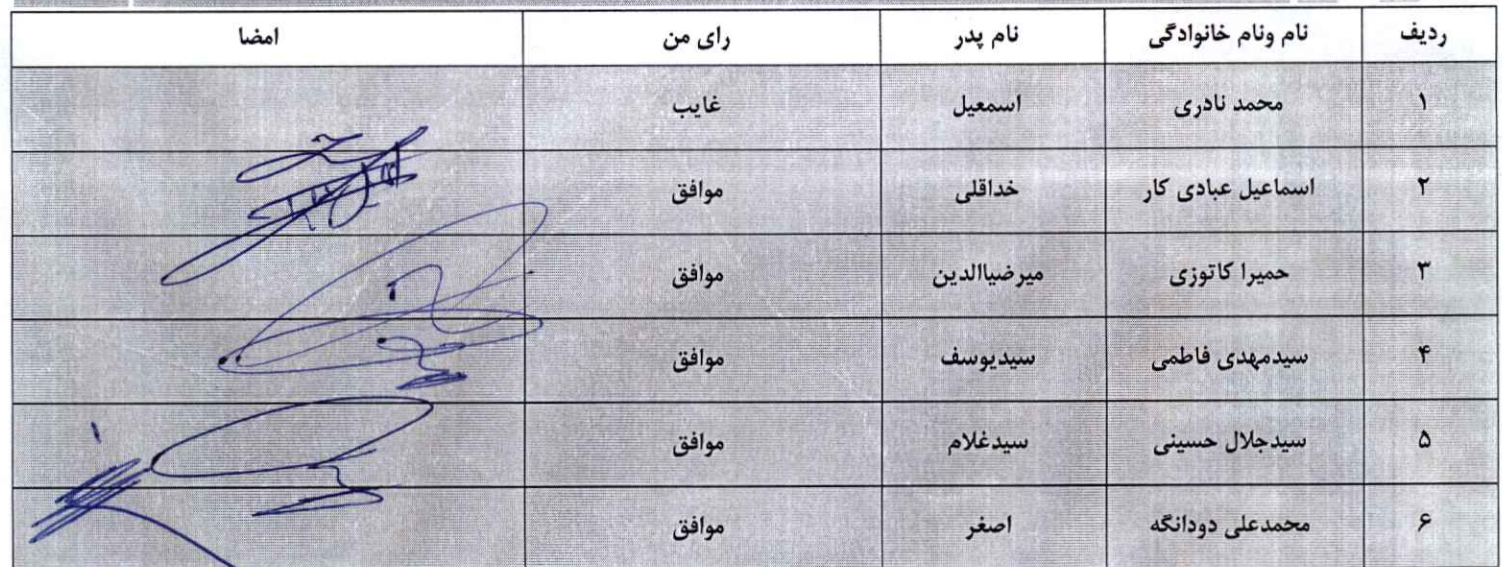 ردیف نام ونام خانوادگی نام پدر رای من امضا
۱ محمد نادری اسمعیل غایب
۲ اسماعیل عبادی کار خداقلی موافق
۳ حمیرا کاتوزی میرضیاالدین موافق
۴ سیدمهدی فاطمی سیدیوسف موافق
۵ سیدجلال حسینی سیدغلام موافق
۶ محمدعلی دودانگه اصغر موافق